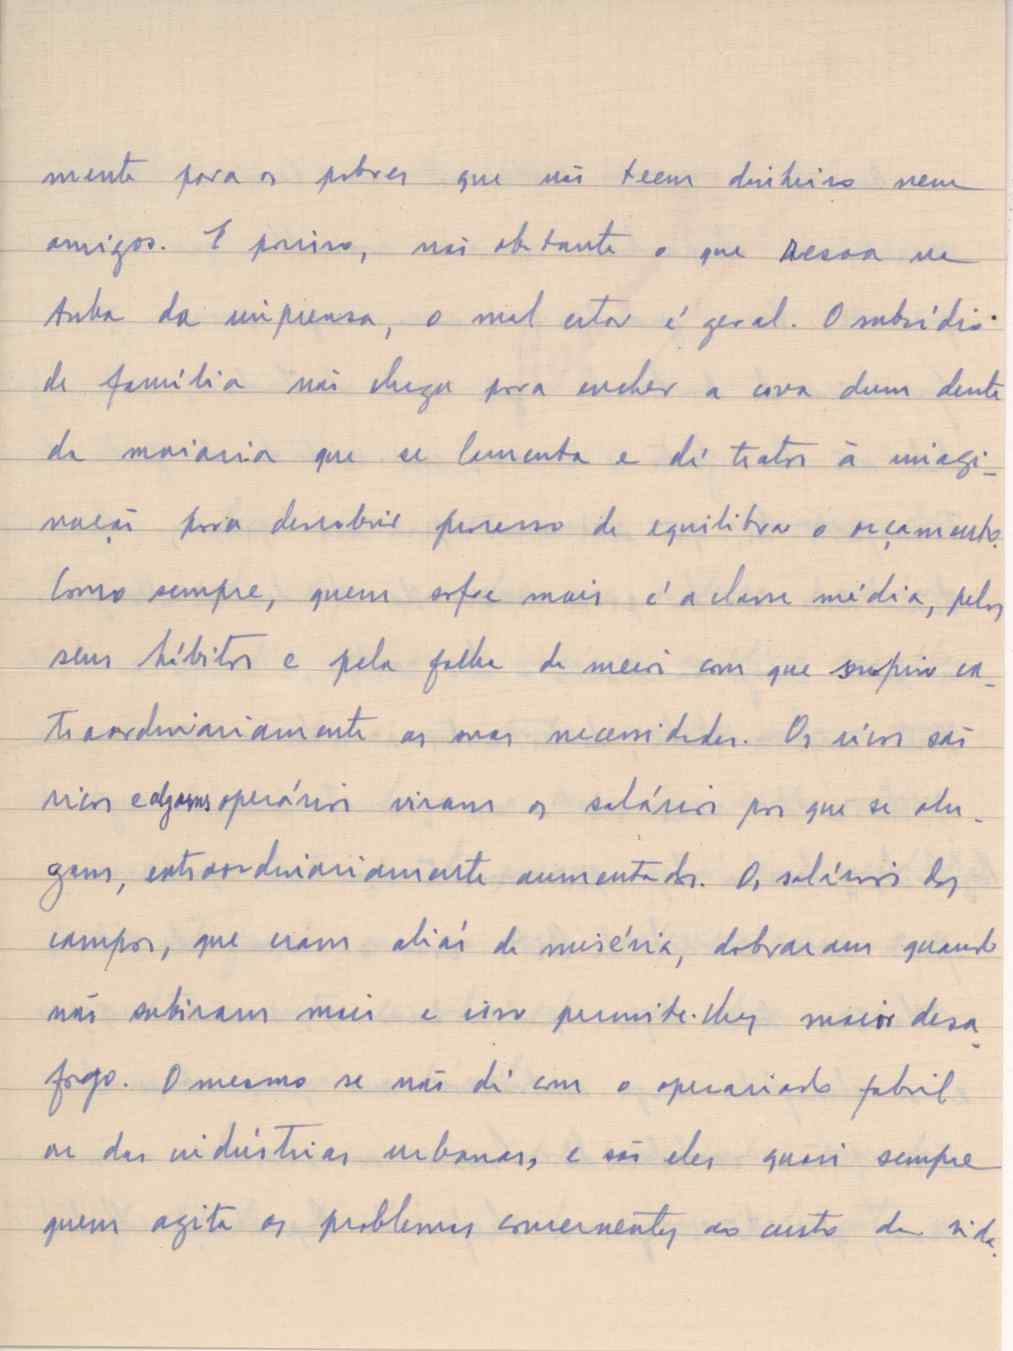 mente para os pobres que não teem dinheiro nem
amigos. E por isso, não obstante o que ressoa na
tuba da imprensa, o mal estar é geral. O subsídio
de família não chega para encher a cova dum dente
da maioria que se lamenta e dá tratos à imagi-
nação para descobrir processo de equilibrar o orçamento.
Como sempre, quem sofre mais é a classe média, pelos
seus hábitos e pela falha de meios com que suprir ex-
traordinariamente as suas necessidades. Os ricos são
ricos e alguns operários viram os salários por que se alu-
gam, extraordinariamente aumentados. Os salários dos
campos, que eram aliás de miséria, dobraram quando
não subiram mais e isso permite-lhes maior desa-
fogo. O mesmo se não dá com o operariado fabril
ou das indústrias urbanas, e são eles quasi sempre
quem agita os problemas concernentes ao custo da vida.